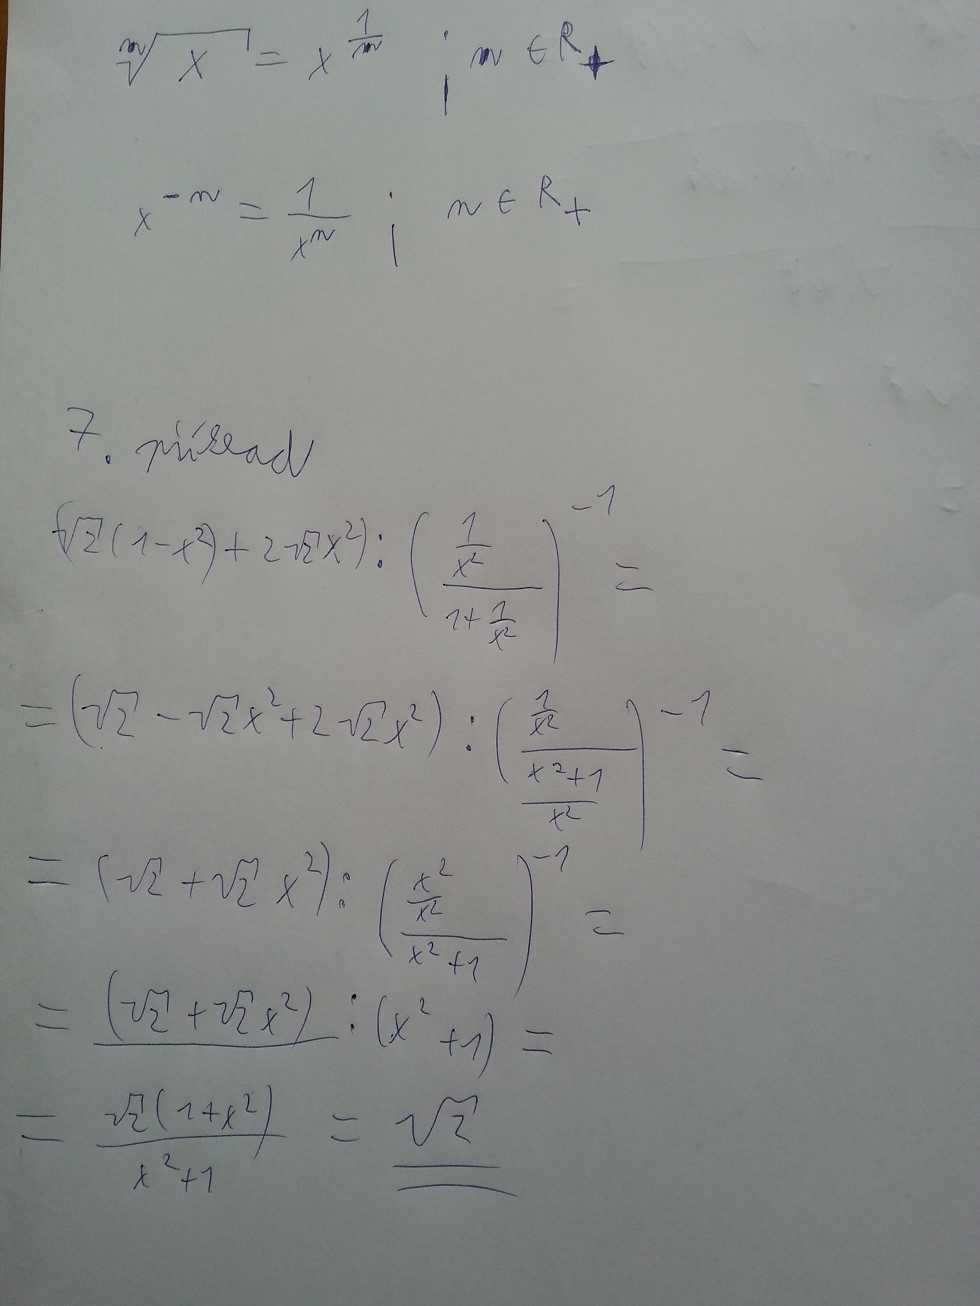 ⁿ√x = x^(1/n) ; n ∈ R₊
x^(-n) = 1/xⁿ ; n ∈ R₊
7. příklad
(√2(1-x²)+2√2x²) : ((1/x²)/(1+1/x²))^(-1) =
= (√2 - √2x² + 2√2x²) : ((1/x²)/((x²+1)/x²))^(-1) =
= (√2 + √2x²) : ((x²/x²)/(x²+1))^(-1) =
= (√2 + √2x²) : (x²+1) =
= √2(1+x²)/(x²+1) = √2